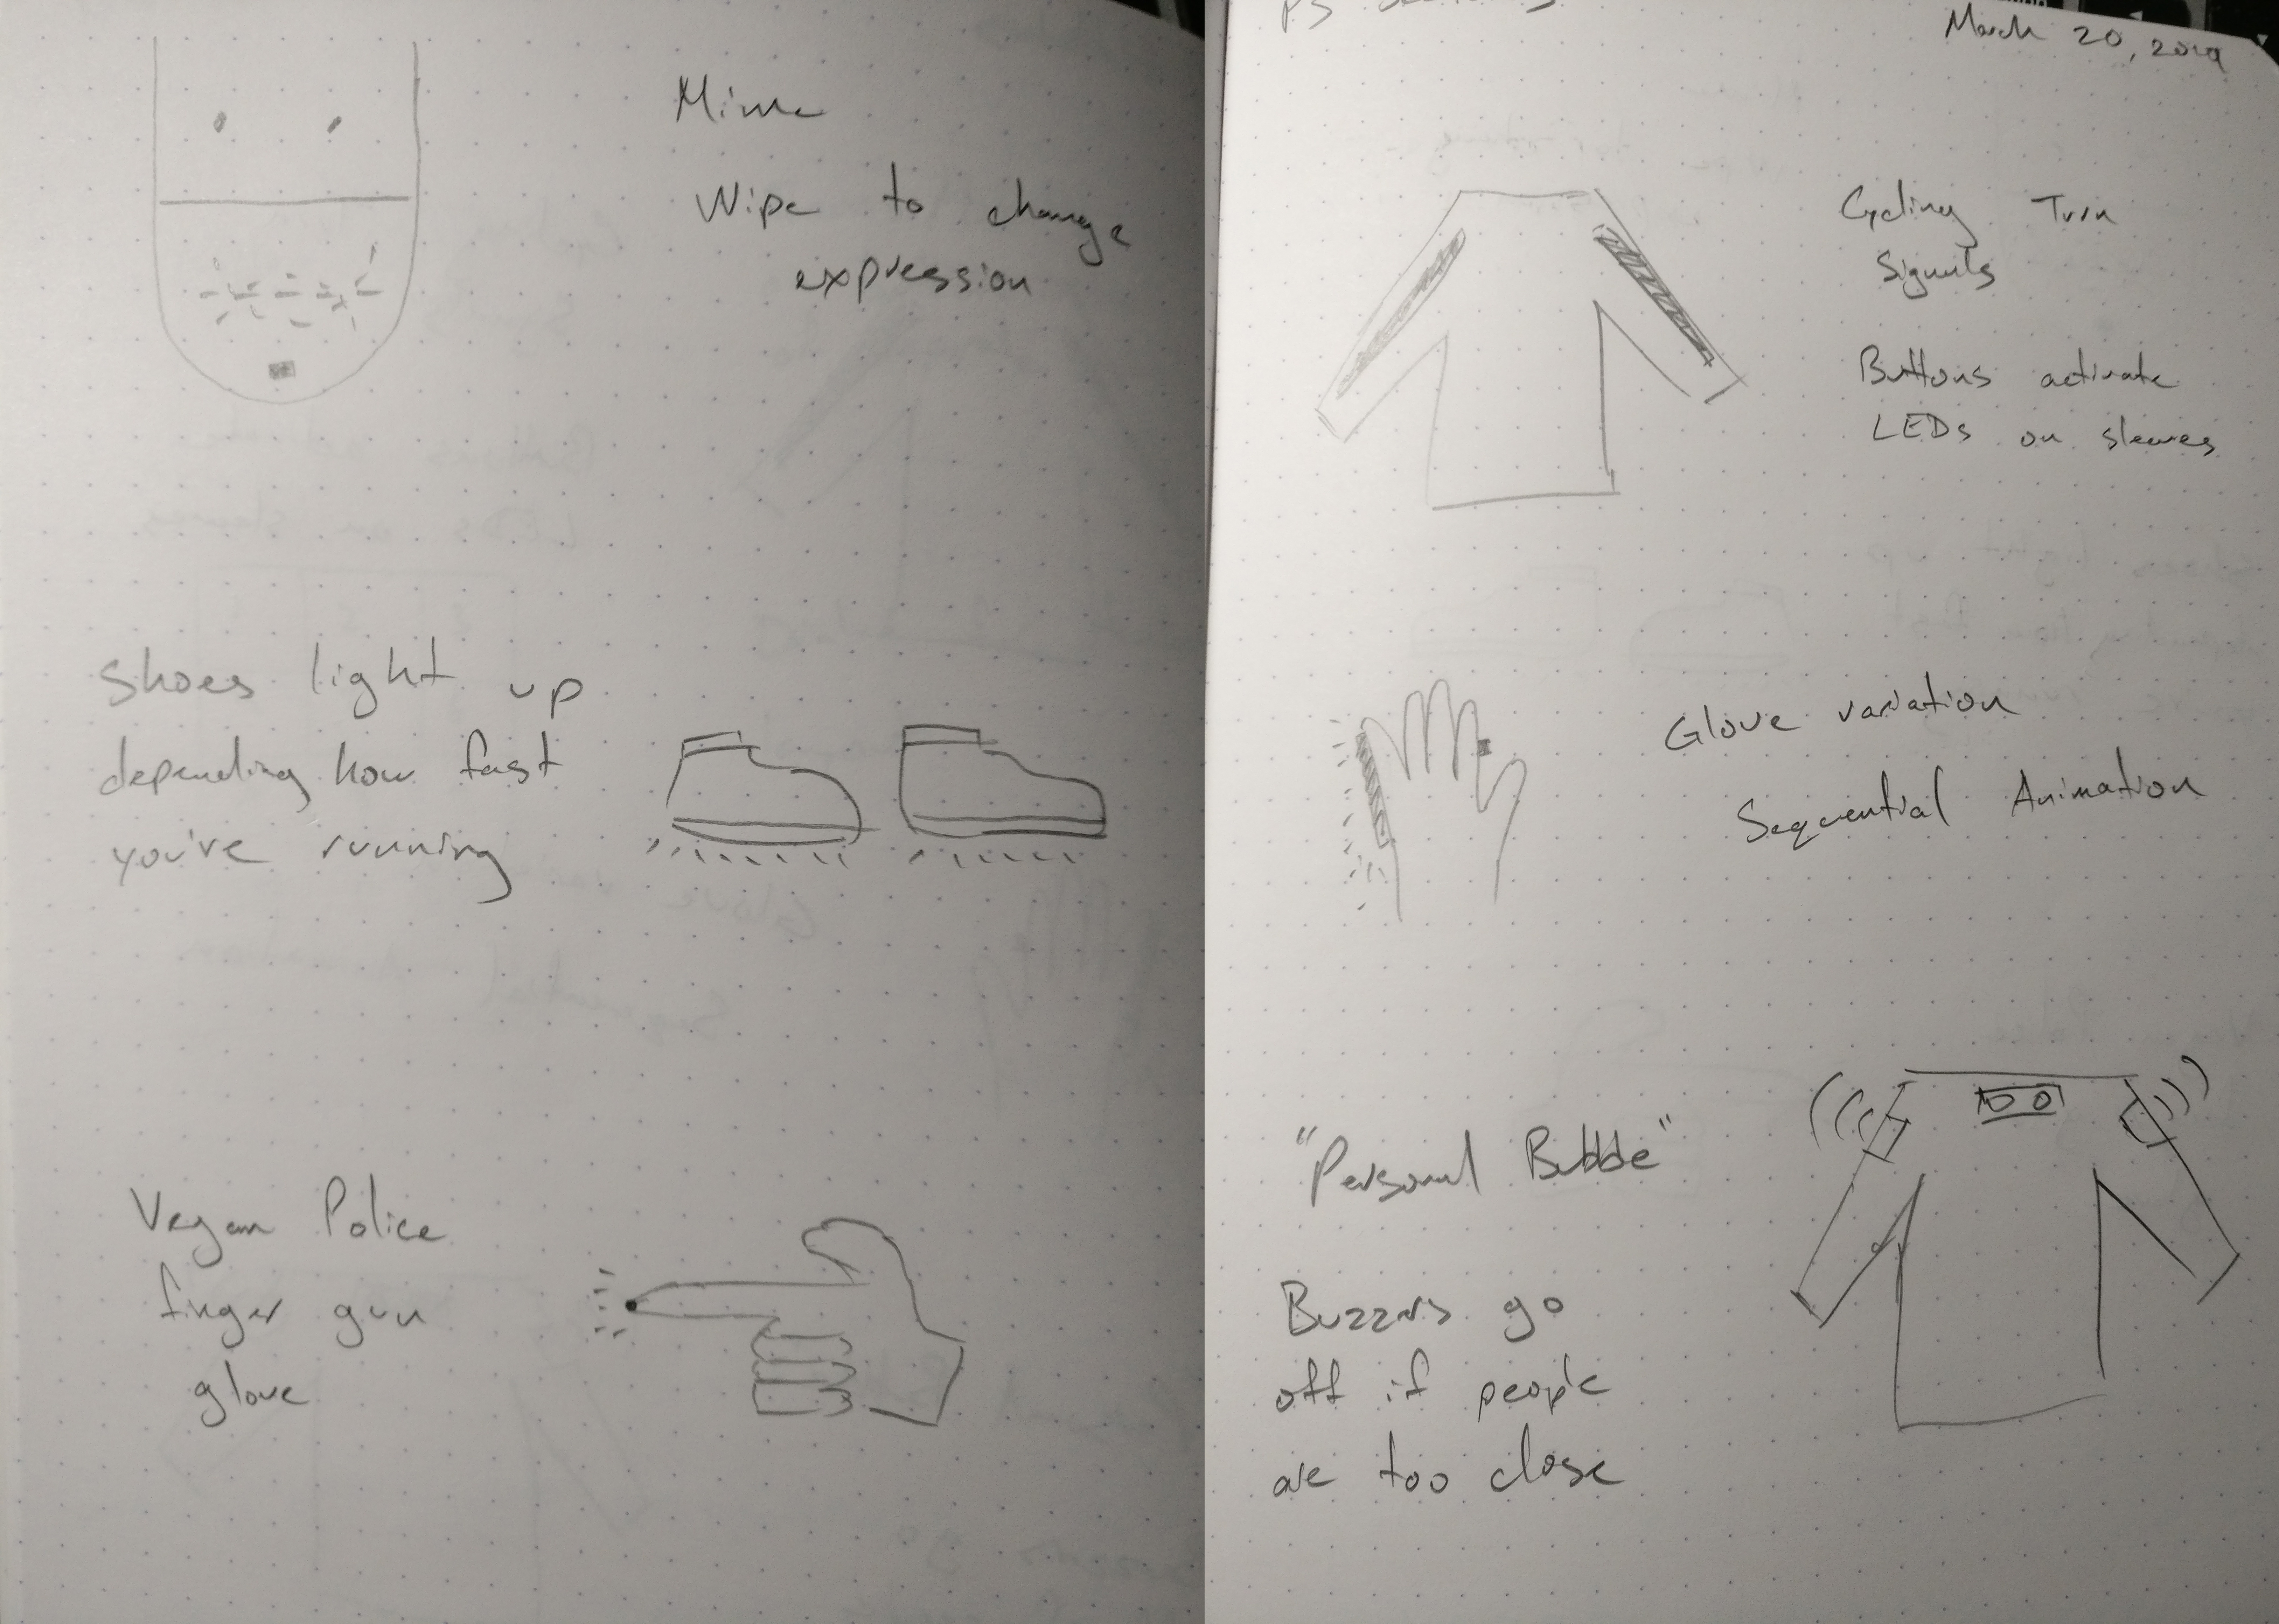 Mime
Wipe to change
expression
Shoes light up
depending how fast
you've running
Vegan Police
finger gun
glove
March 20, 2019
Cycling Turn
Signals
Buttons activate
LEDs on sleeves
Glove variation
Sequential Animation
"Personal Bubble"
Buzzers go
off if people
are too close